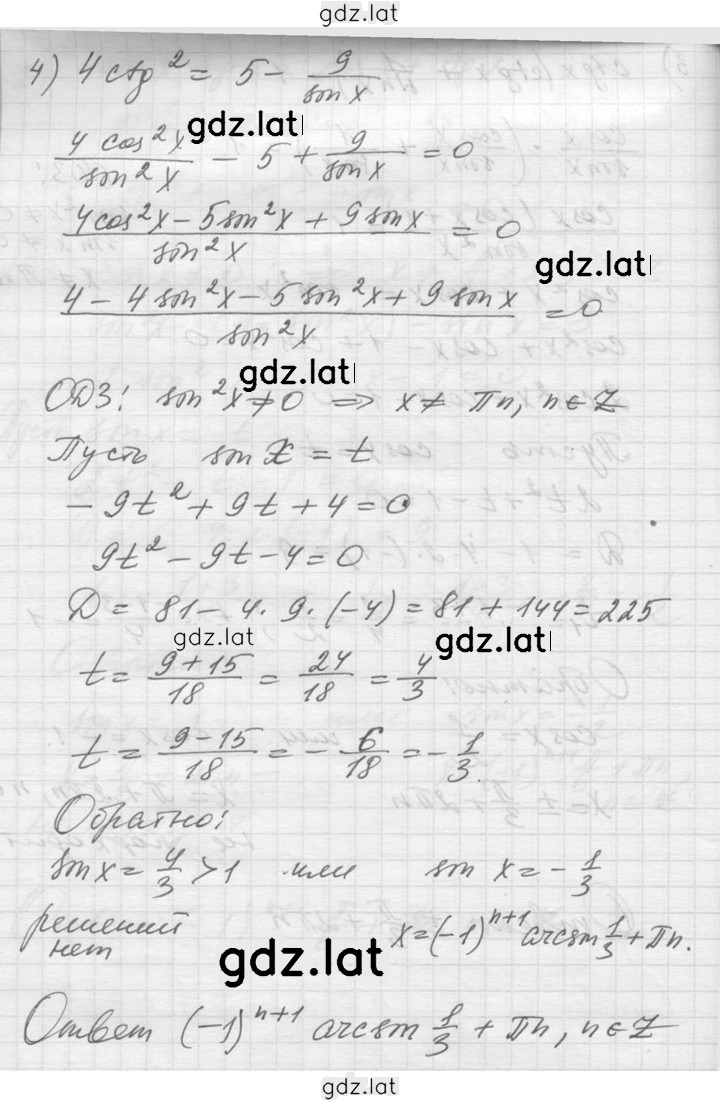 gdz.lat
4) 4 ctg² = 5 - 9/sin x
gdz.lat
4 cos² x / sin² x - 5 + 9/sin x = 0
4cos² x - 5 sin² x + 9 sin x / sin² x = 0
gdz.lat
4 - 4 sin² x - 5 sin² x + 9 sin x / sin² x = 0
gdz.lat
ОДЗ: sin² x ≠ 0 ⇒ x ≠ πn, n ∈ Z
Пусть sin x = t
- 9t² + 9t + 4 = 0
9t² - 9t - 4 = 0
D = 81 - 4 · 9 · (-4) = 81 + 144 = 225
gdz.lat
gdz.lat
t = 9 + 15 / 18 = 24/18 = 4/3
t = 9 - 15 / 18 = - 6/18 = - 1/3.
Обратно:
sin x = 4/3 > 1 или sin x = - 1/3
решений нет x = (-1)ⁿ⁺¹ arcsin 1/3 + πn.
gdz.lat
Ответ (-1)ⁿ⁺¹ arcsin 1/3 + πn, n ∈ Z
gdz.lat